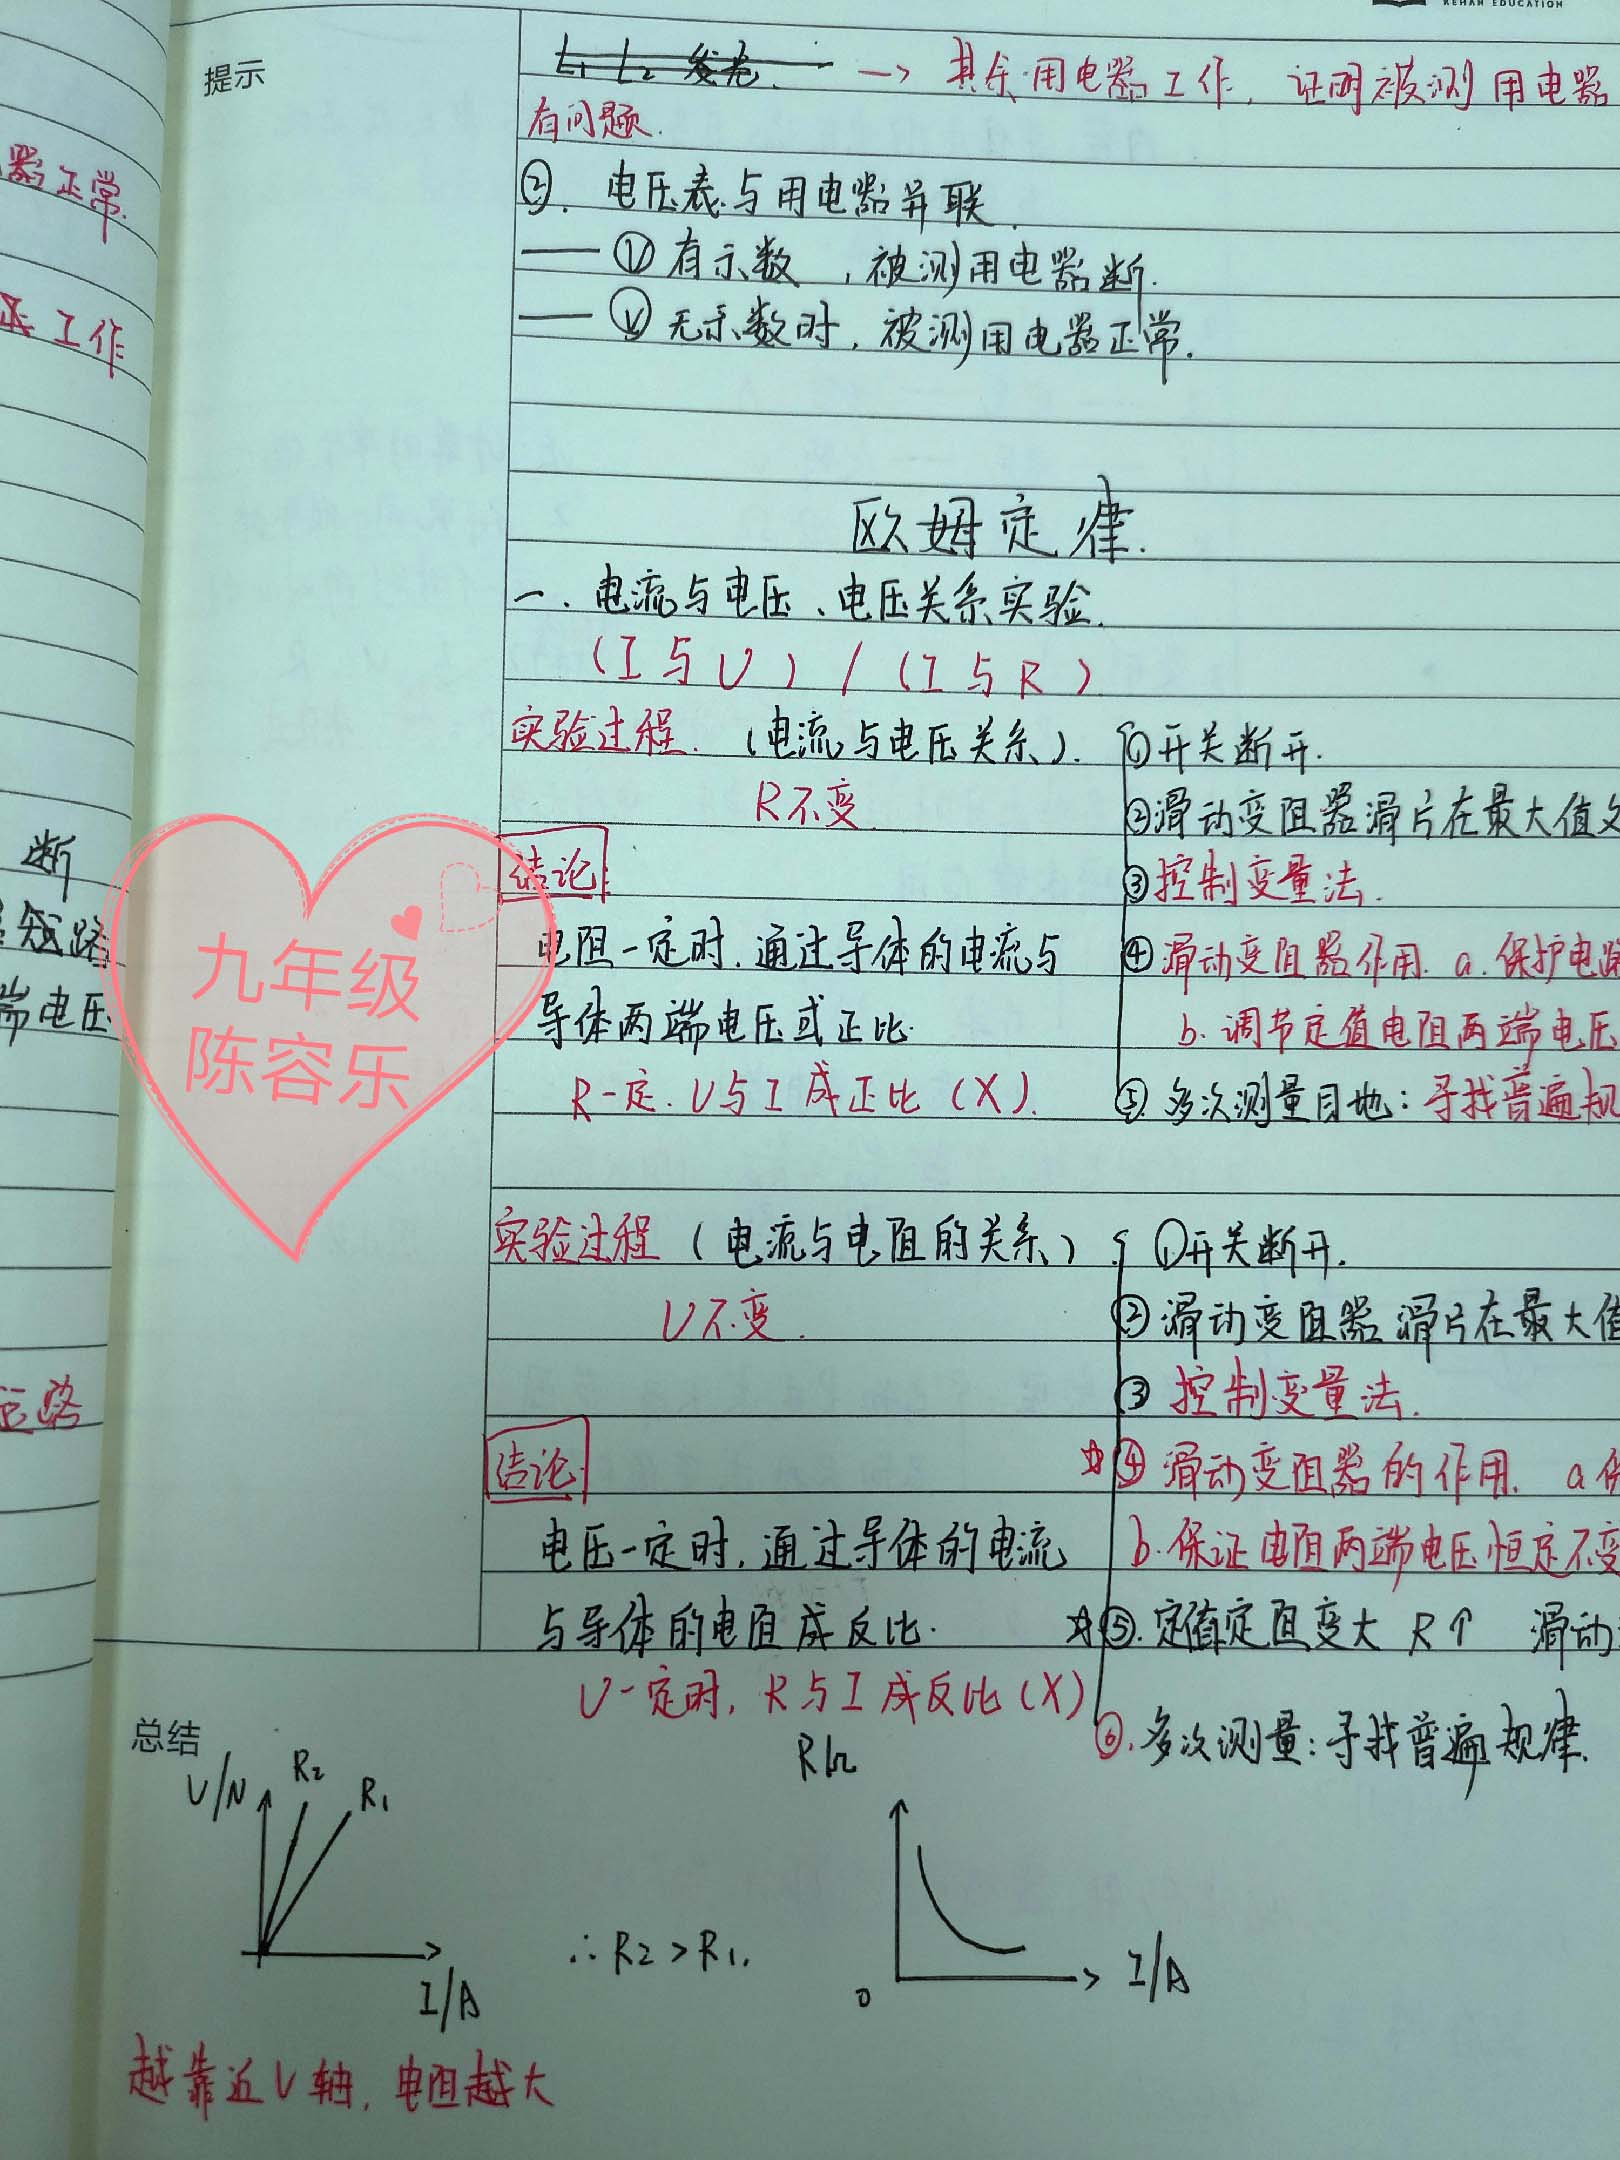 REHAN EDUCATION
提示
L₁ L₂ 发光. → 其余用电器工作, 证明被测用电器
有问题.
②. 电压表与用电器并联.
—— Ⓥ 有示数, 被测用电器断.
—— Ⓥ 无示数时, 被测用电器正常.
器正常.
工作
欧姆定律.
一. 电流与电压、电压关系实验.
(I与U) / (I与R)
实验过程. (电流与电压关系).
R不变.
①开关断开.
②滑动变阻器滑片在最大值
③控制变量法.
④滑动变阻器作用. a.保护电路
b.调节定值电阻两端电压
⑤多次测量目地: 寻找普遍规
结论.
电阻一定时, 通过导体的电流与
导体两端电压或正比.
R一定. U与I成正比 (X).
断
短路
端电压
九年级
陈容乐
实验过程 (电流与电阻的关系)
U不变.
①开关断开.
②滑动变阻器滑片在最大值
③控制变量法.
☆④滑动变阻器的作用. a
b.保证电阻两端电压恒定不变
☆⑤. 定值定阻变大 R↑ 滑动
⑥.多次测量: 寻找普遍规律.
结论.
电压一定时, 通过导体的电流
与导体的电阻成反比.
U一定时, R与I成反比 (X)
路
总结
U/N R₂ R₁
I/A
∴R₂>R₁.
R/Ω
0 I/A
越靠近U轴, 电阻越大